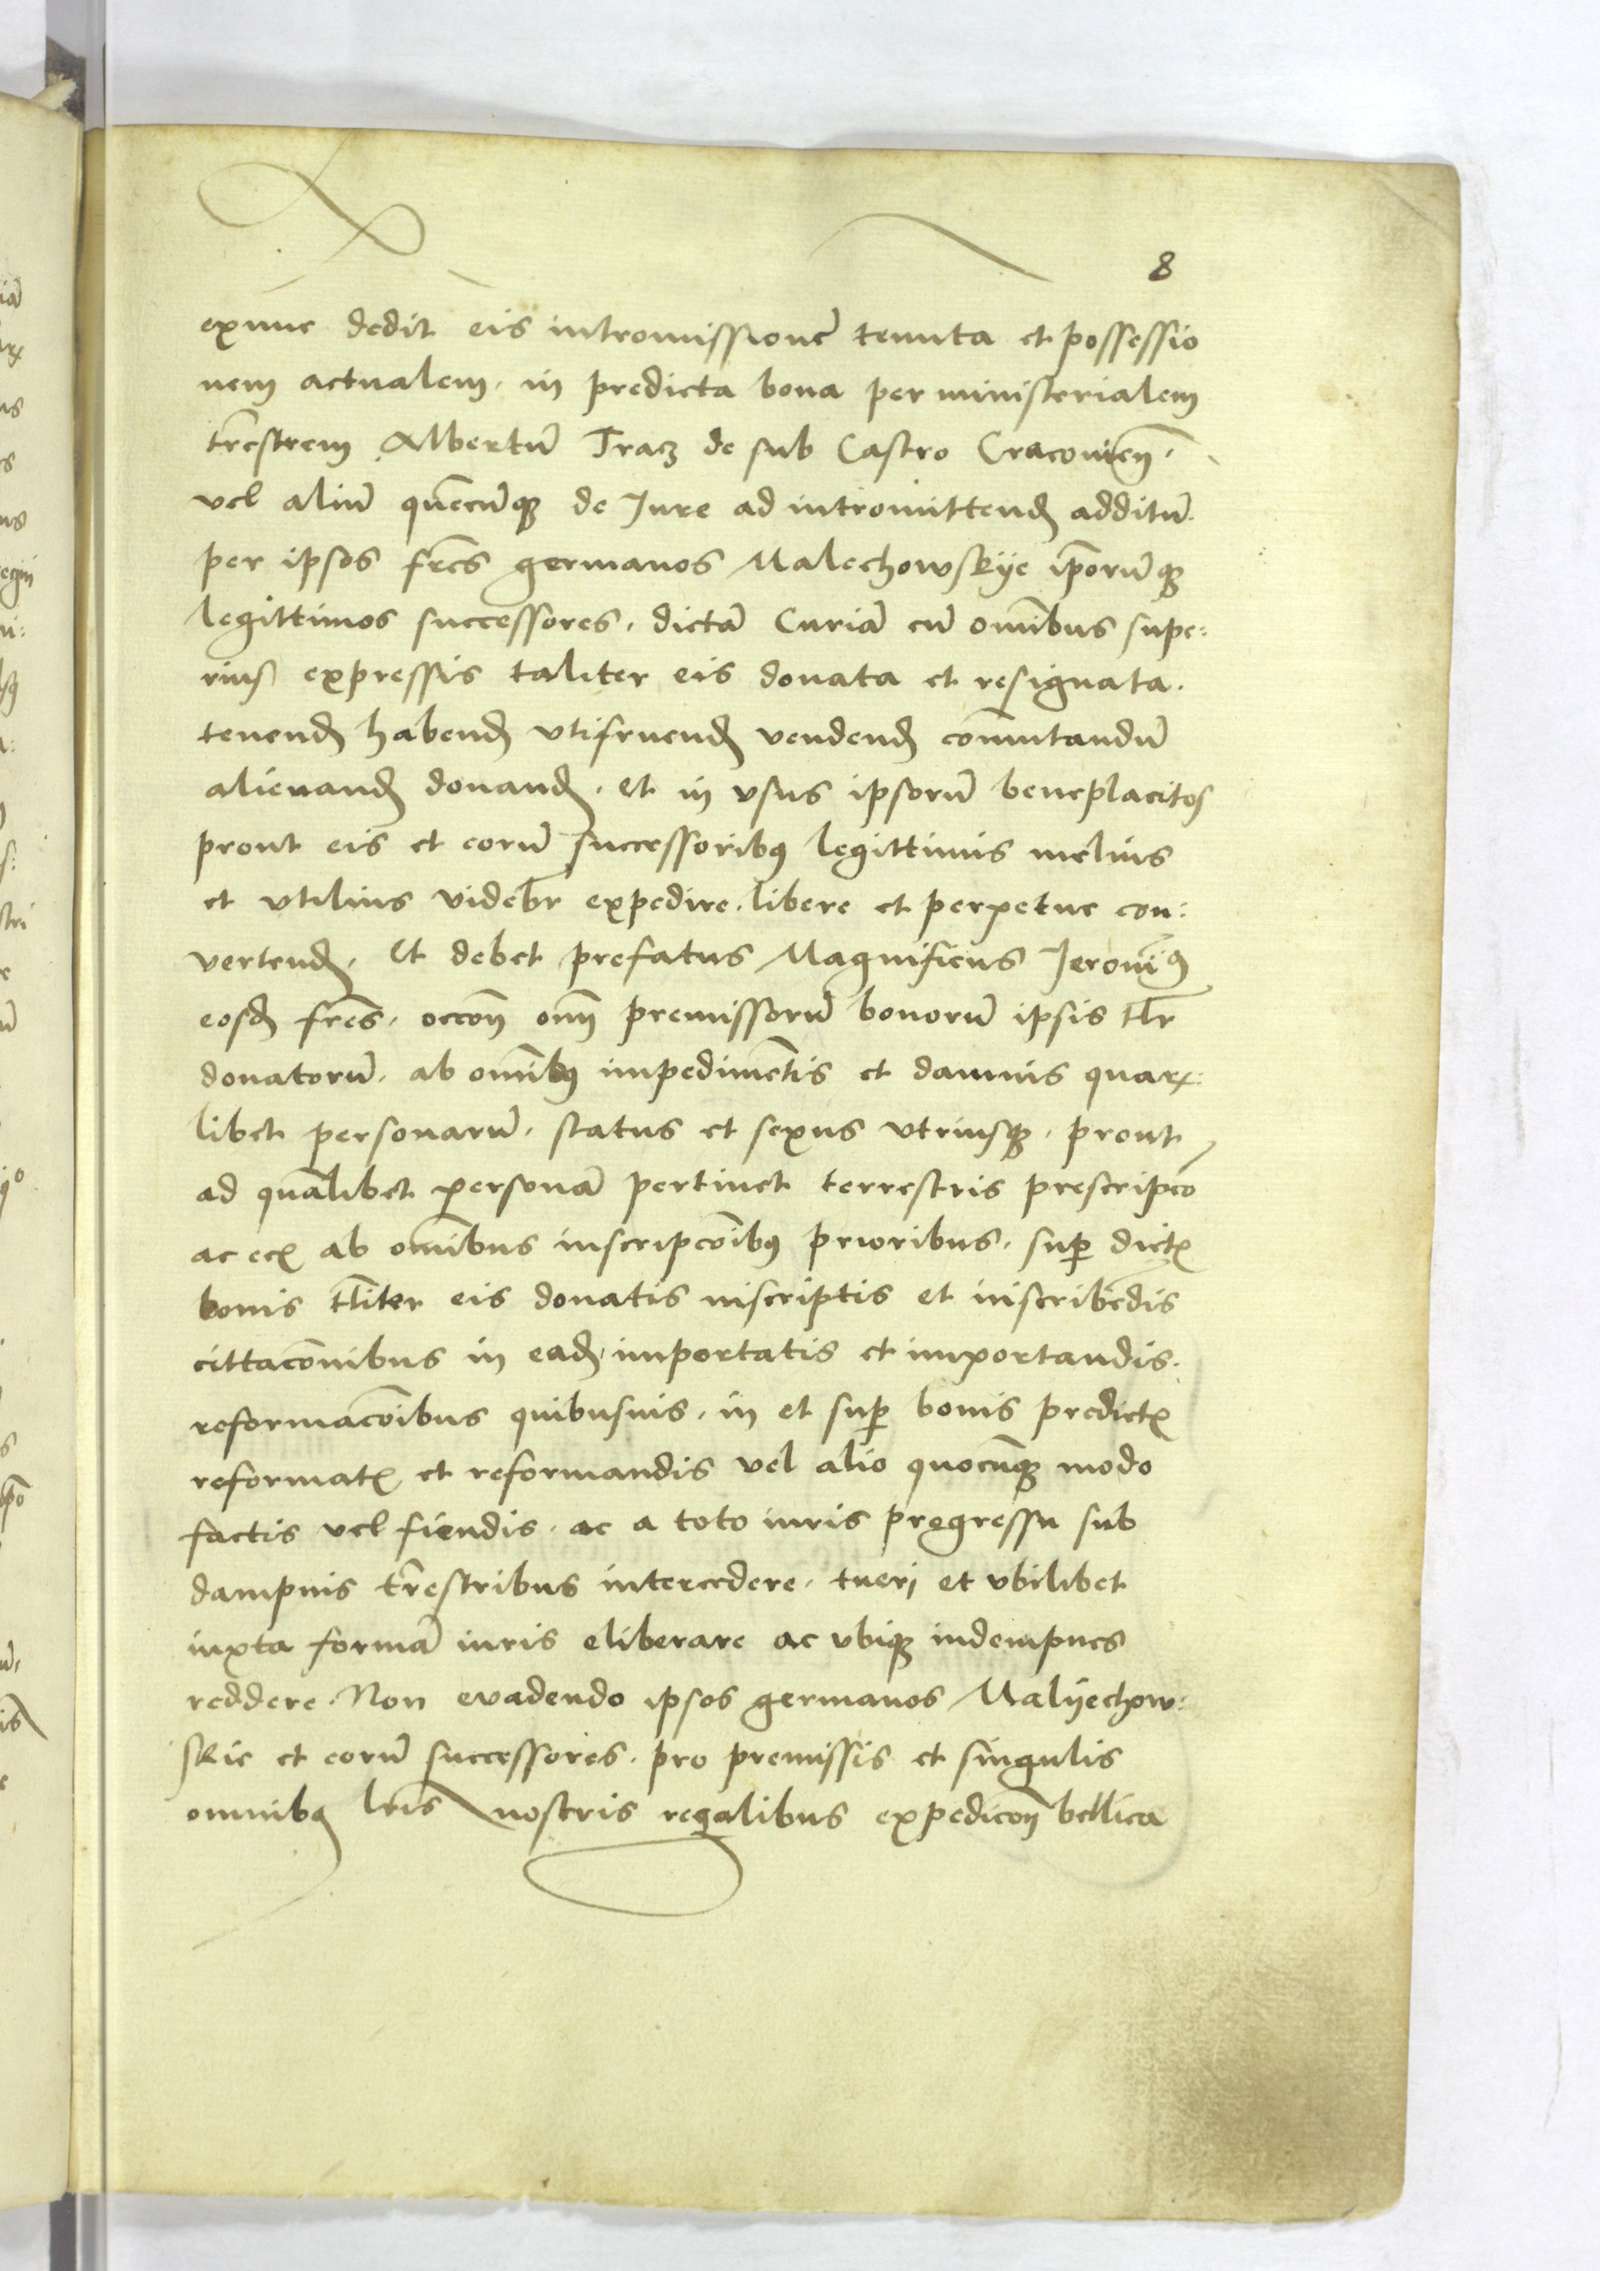 8
exnunc dedit eis intromissionē tenuta et possessio
nem actualem. in predicta bona per ministerialem
trestrem Albertū Tracz de sub Castro Cracovien̄.
vel aliū quēcūq3 de Jure ad intromittend̄ additū.
per ipsos frēs germanos Malechowskÿe ip̄orūq3
legittimos successores. dictā Curiā cū om̄ibus supe:
rius expressis taliter eis donata et resignata.
tenend̄ habend̄ vtifruend̄ vendend̄ com̄utandū
alienand̄ donand̄. et in vsus ipsorū beneplacitos
prout eis et eorū successorib9 legittimis melius
et vtilius videbr̄ expedire. libere et perpetue con:
vertend̄. Et debet prefatus Magnificus Jeronim9
eosd̄ frēs. occon̄ om̄ premissorū bonorū ipsis tlr̄
donatorū. ab om̄ib9 impedimētis et damnis quar:
libet personarū. status et sexus vtriusq3. prout
ad quālibet personā pertinet terrestris prescripcō
ac ec̄ ab om̄ibus inscripcōib9 prioribus. sup̄ dict̄
bonis tl̄iter eis donatis inscriptis et inscribēdis
cittacōnibus in ead̄ importatis et importandis.
reformacōibus quibusuis. in et sup̄ bonis predict̄
reformat̄ et reformandis vel alio quocūq3 modo
factis vel fiendis. ac a toto iuris progressu sub
dampnis tr̄estribus intercedere. tueri et vbilibet
iuxta formā iuris eliberare ac vbiq3 indempnes
reddere. Non evadendo ipsos germanos Malÿechow:
skie et eorū successores. pro premissis et singulis
omnib9 lr̄is nostris regalibus expedicon̄ bellica